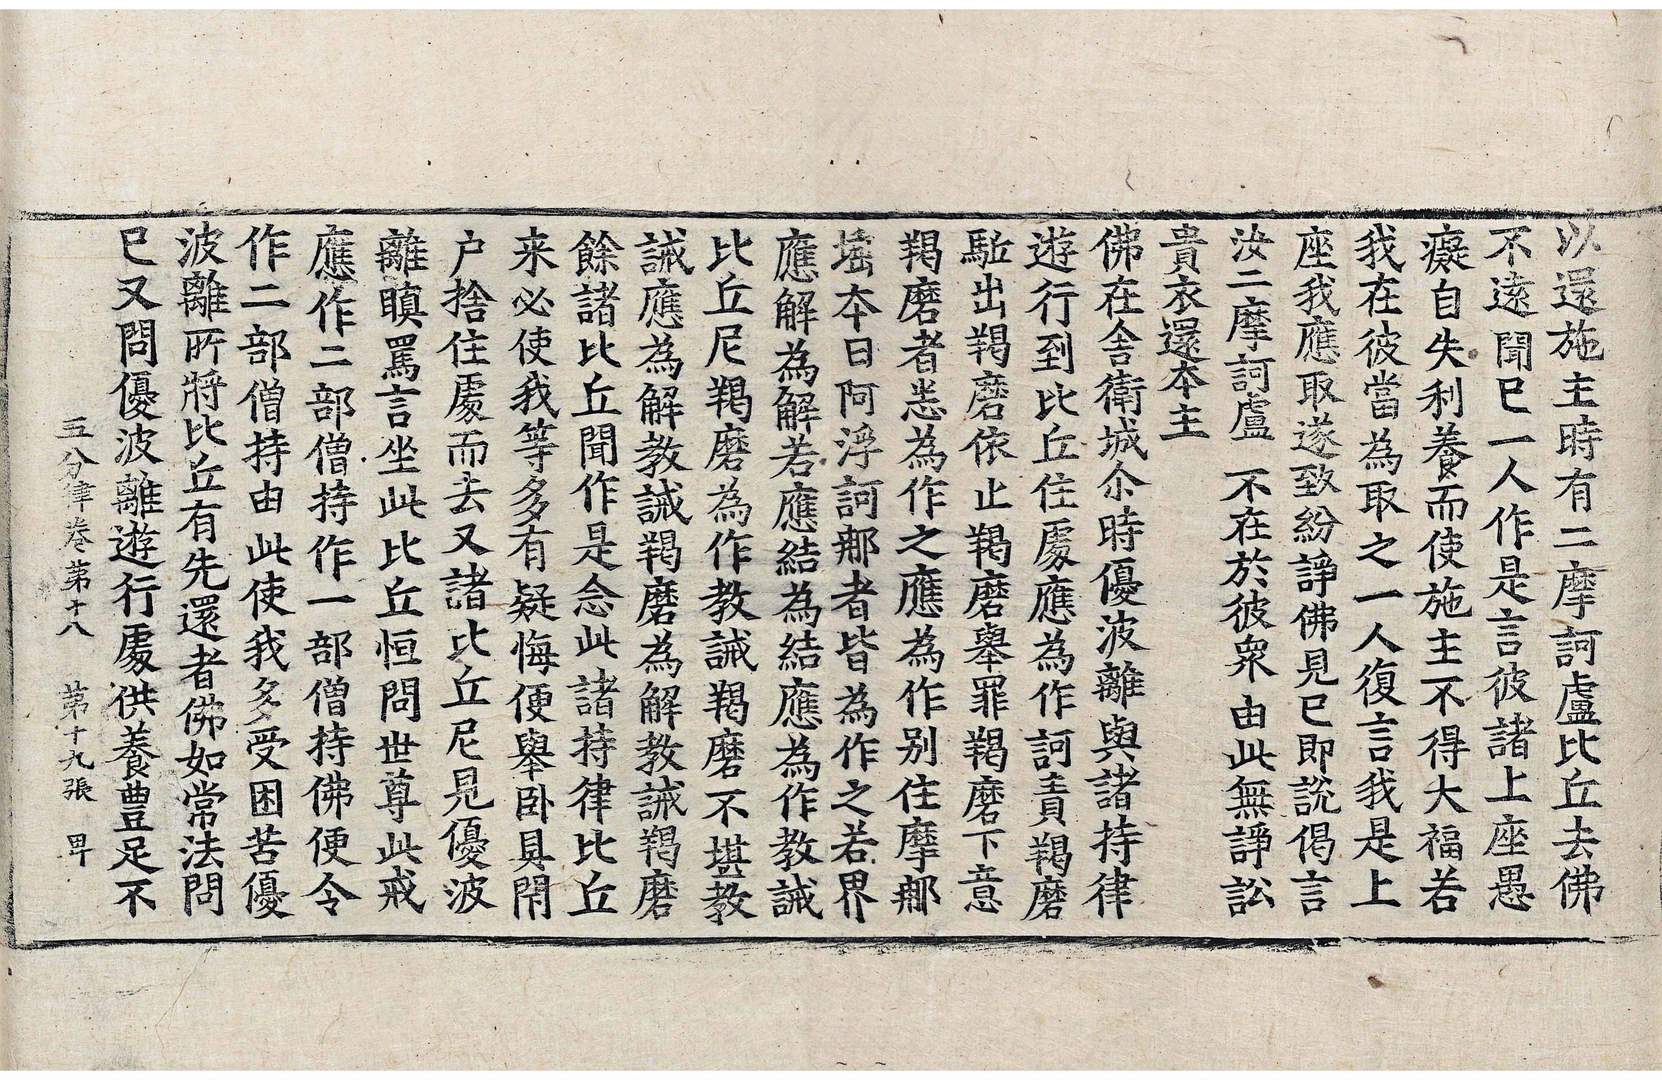 以還施主時有二摩訶盧比丘去佛
不遠聞已一人作是言彼諸上座愚
癡自失利養而使施主不得大福若
我在彼當為取之一人復言我是上
座我應取遂致紛諍佛見已即說偈言
汝二摩訶盧　不在於彼衆　由此無諍訟
貴衣還本主
佛在舍衛城尒時優波離與諸持律
遊行到比丘住處應為作訶責羯磨
駈出羯磨依止羯磨舉罪羯磨下意
羯磨者悉為作之應為作別住摩那
埵本日阿浮訶那者皆為作之若界
應解為解若應結為結應為作教誡
比丘尼羯磨為作教誡羯磨不堪教
誡應為解教誡羯磨為解教誡羯磨
餘諸比丘聞作是念此諸持律比丘
来必使我等多有疑悔便舉卧具閇
户捨住處而去又諸比丘尼見優波
離瞋罵言坐此比丘恒問世尊此戒
應作二部僧持作一部僧持佛便令
作二部僧持由此使我多受困苦優
波離所將比丘有先還者佛如常法問
已又問優波離遊行處供養豊足不
五分律卷第十八　第十九張　畀